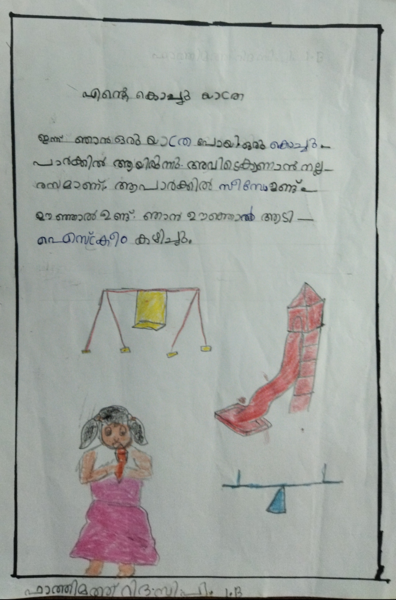 എന്റെ കൊച്ചു യാത്ര
ഇന്ന് ഞാൻ ഒരു യാത്ര പോയി. ഒരു കൊച്ചു
പാർക്കിൽ ആയിരുന്നു അവിടെ കാണാൻ നല്ല
രസമാണ്. ആ പാർക്കിൽ സീസോ ഉണ്ട്
ഊഞ്ഞാൽ ഉണ്ട്. ഞാൻ ഊഞ്ഞാൽ ആടി
ഐസ്ക്രീം കഴിച്ചു.
ഫാത്തിമത്ത് 1.B